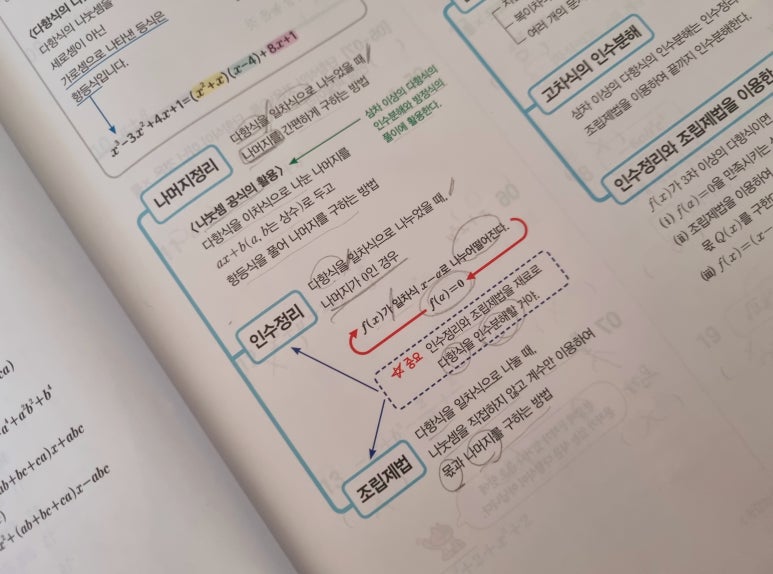 다항식의 나눗셈을
세로셈이 아닌
가로셈으로 나타낸 등식은
항등식입니다.
x³-3x²+4x+1=(x²+x)(x-4)+8x+1
나머지정리
다항식을 일차식으로 나누었을 때,
나머지를 간편하게 구하는 방법
삼차 이상의 다항식의
인수분해와 방정식의
풀이에 활용한다.
〈나눗셈 공식의 활용〉
다항식을 이차식으로 나눈 나머지를
ax+b(a, b는 상수)로 두고
항등식을 풀어 나머지를 구하는 방법
인수정리
다항식을 일차식으로 나누었을 때,
나머지가 0인 경우
f(x)가 일차식 x-α로 나누어떨어진다.
f(α)=0
☆ 중요 인수정리와 조립제법을 재료로
다항식을 인수분해할 거야.
조립제법
다항식을 일차식으로 나눌 때,
나눗셈을 직접하지 않고 계수만 이용하여
몫과 나머지를 구하는 방법
여러 개의 문
고차식의 인수분해
삼차 이상의 다항식의 인수분해는 인수정리
조립제법을 이용하여 끝까지 인수분해한다.
인수정리와 조립제법을 이용하
f(x)가 3차 이상의 다항식이면
(ⅰ) f(α)=0을 만족시키는
(ⅱ) 조립제법을 이용하여
몫 Q(x)를 구한다
(ⅲ) f(x)=(x-
ca)
a⁴+a²b²+b⁴
ab+bc+ca)x+abc
x²+(ab+bc+ca)x-abc